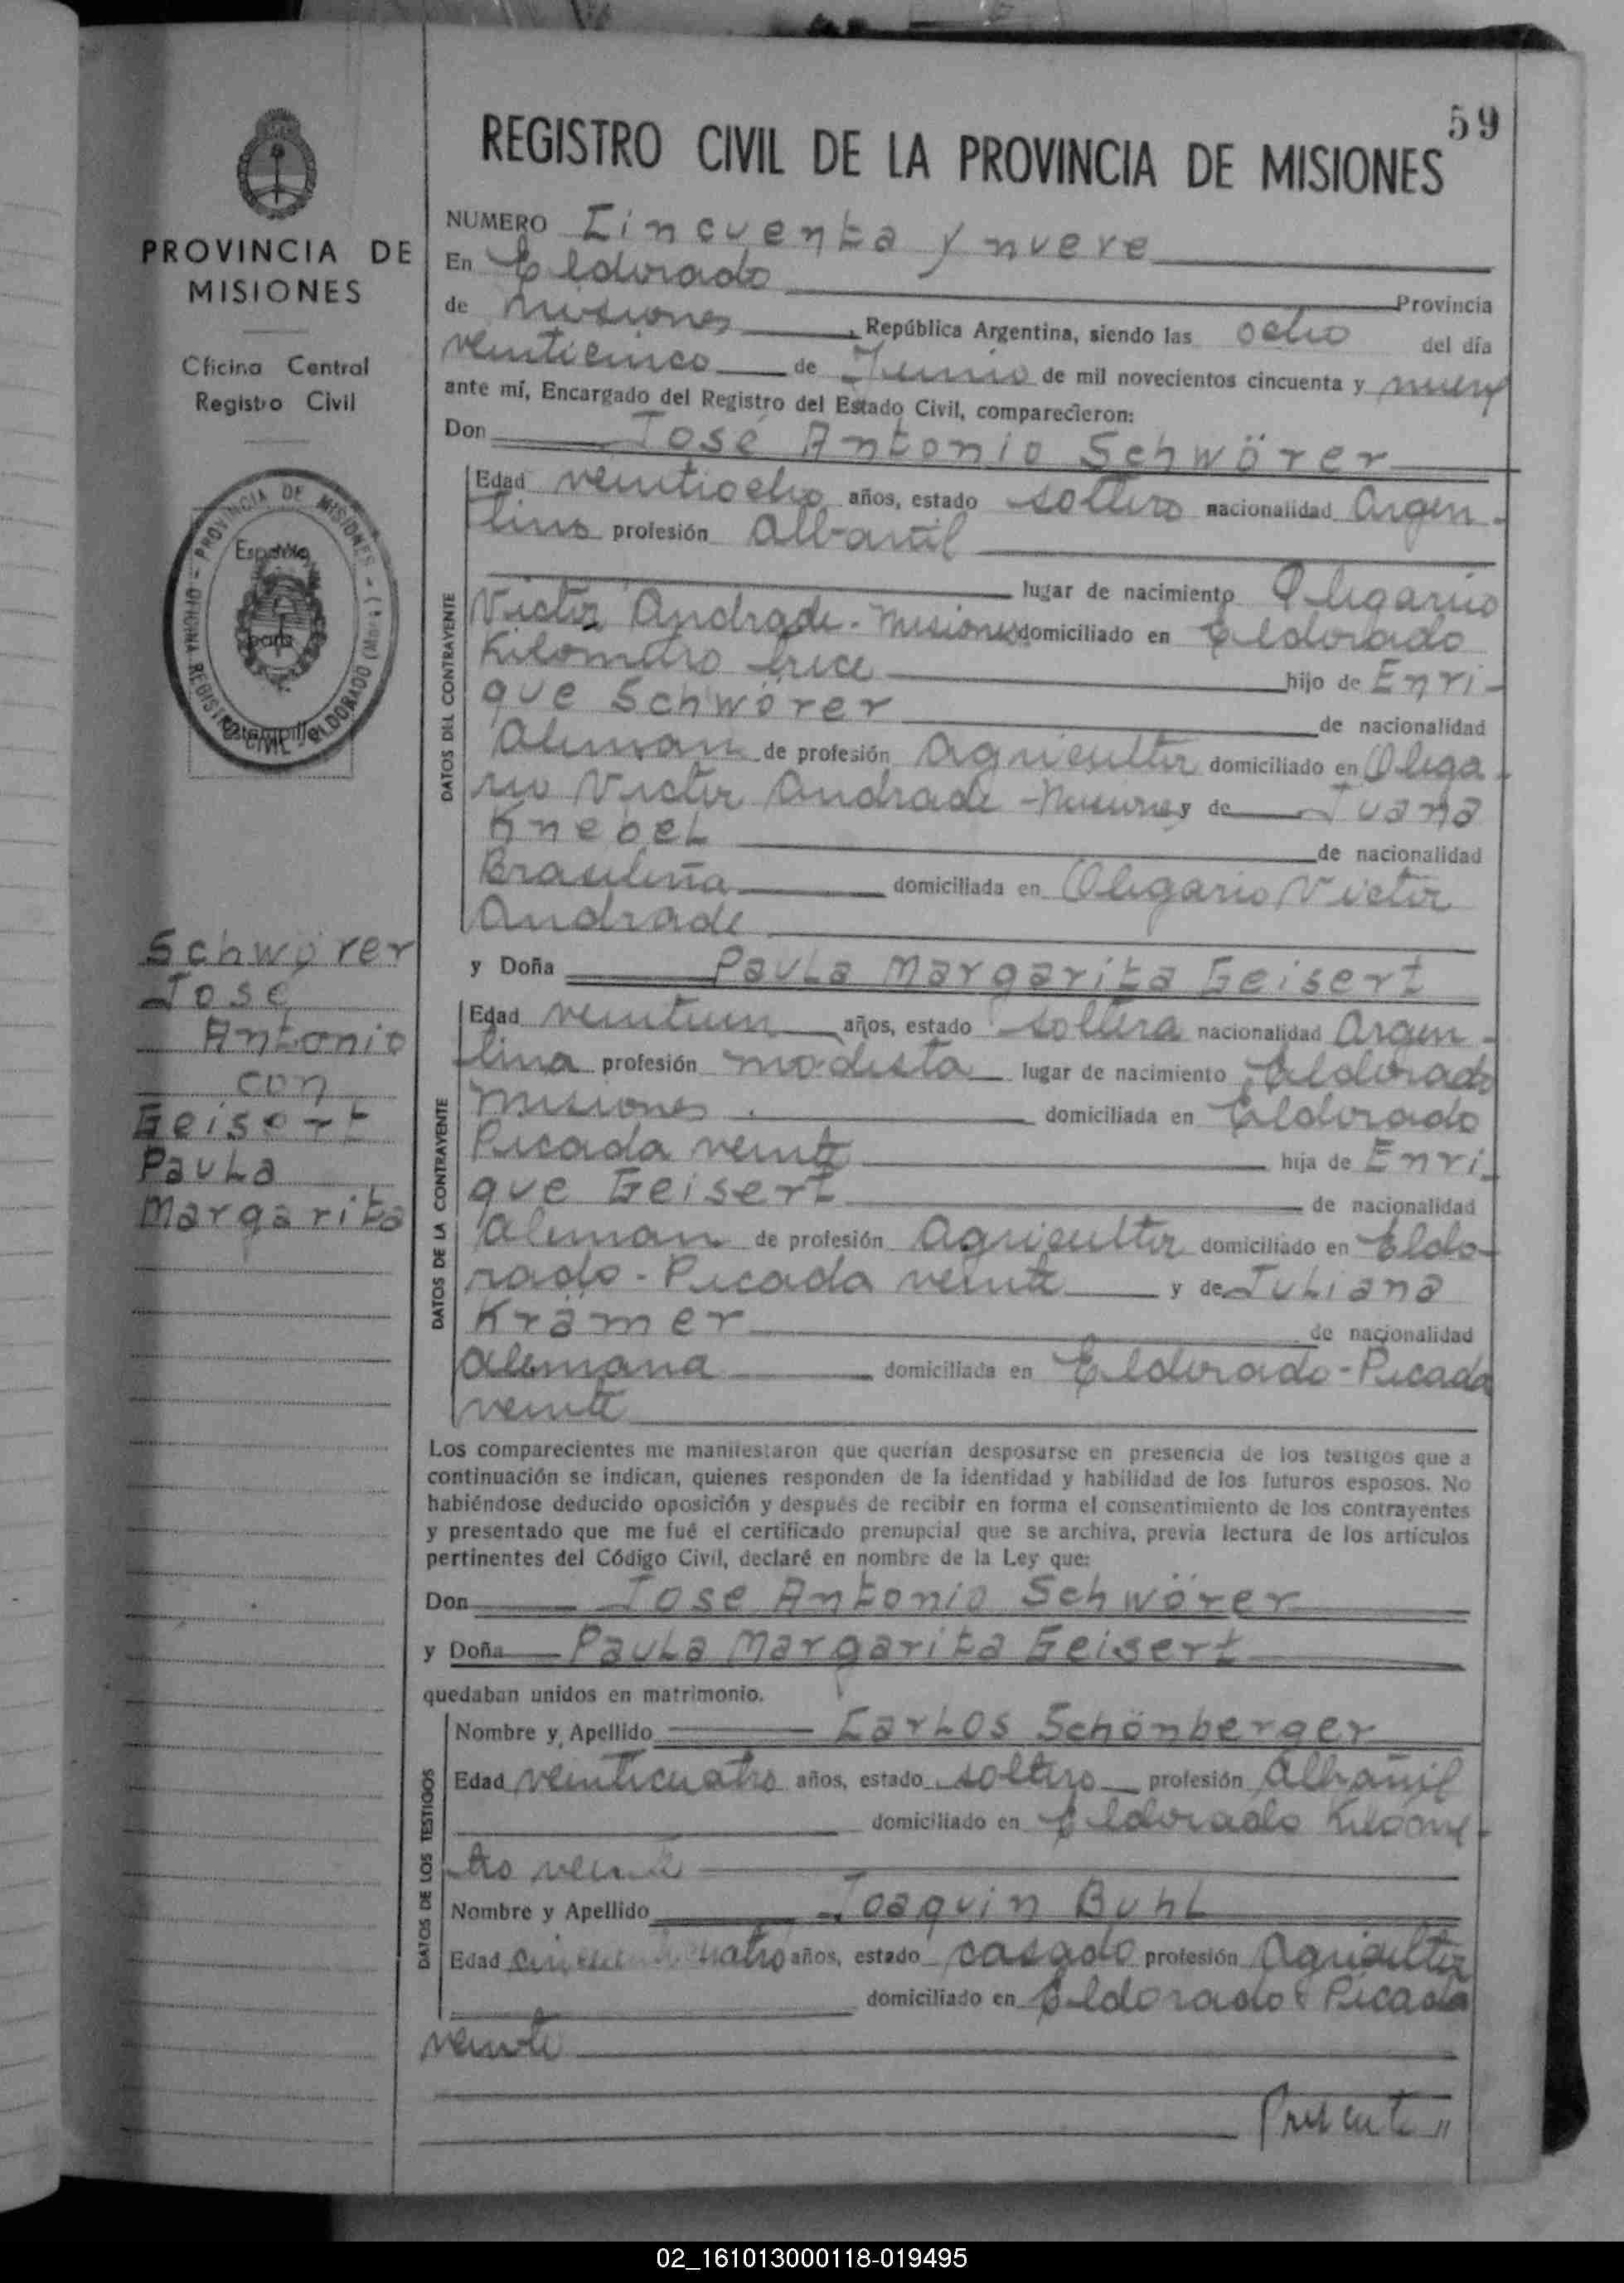 59
REGISTRO CIVIL DE LA PROVINCIA DE MISIONES
PROVINCIA DE
MISIONES
Oficina Central
Registro Civil
PROVINCIA DE MISIONES
Especie
para
Estampilla
Schwörer
José
Antonio
con
Geisert
Paula
Margarita
NUMERO Cincuenta y nueve
En Eldorado Provincia
de Misiones, República Argentina, siendo las ocho del día
veinticinco de Junio de mil novecientos cincuenta y nueve
ante mí, Encargado del Registro del Estado Civil, comparecieron:
Don José Antonio Schwörer
DATOS DEL CONTRAYENTE
Edad veintiocho años, estado soltero nacionalidad Argen-
tino profesión Albañil
lugar de nacimiento Olegario
Victor Andrade - Misiones domiciliado en Eldorado
Kilometro trece hijo de Enri-
que Schwörer de nacionalidad
Aleman de profesión Agricultor domiciliado en Olega-
rio Victor Andrade - Misiones y de Juana
Knebel de nacionalidad
Brasileña domiciliada en Olegario Victor
Andrade
y Doña Paula Margarita Geisert
DATOS DE LA CONTRAYENTE
Edad veintiun años, estado soltera nacionalidad Argen-
tina profesión modista lugar de nacimiento Eldorado
Misiones domiciliada en Eldorado
Picada veinte hija de Enri-
que Geisert de nacionalidad
Aleman de profesión Agricultor domiciliado en Eldo-
rado - Picada veinte y de Juliana
Krämer de nacionalidad
Alemana domiciliada en Eldorado - Picada
veinte
Los comparecientes me manifestaron que querían desposarse en presencia de los testigos que a
continuación se indican, quienes responden de la identidad y habilidad de los futuros esposos. No
habiéndose deducido oposición y después de recibir en forma el consentimiento de los contrayentes
y presentado que me fué el certificado prenupcial que se archiva, previa lectura de los artículos
pertinentes del Código Civil, declaré en nombre de la Ley que:
Don José Antonio Schwörer
y Doña Paula Margarita Geisert
quedaban unidos en matrimonio.
DATOS DE LOS TESTIGOS
Nombre y Apellido Carlos Schönberger
Edad veinticuatro años, estado soltero profesión Albañil
domiciliado en Eldorado Kilóme-
tro veinte
Nombre y Apellido Joaquin Buhl
Edad cincuenticuatro años, estado casado profesión Agricultor
domiciliado en Eldorado Picada
veinte
Presente "
02_161013000118-019495